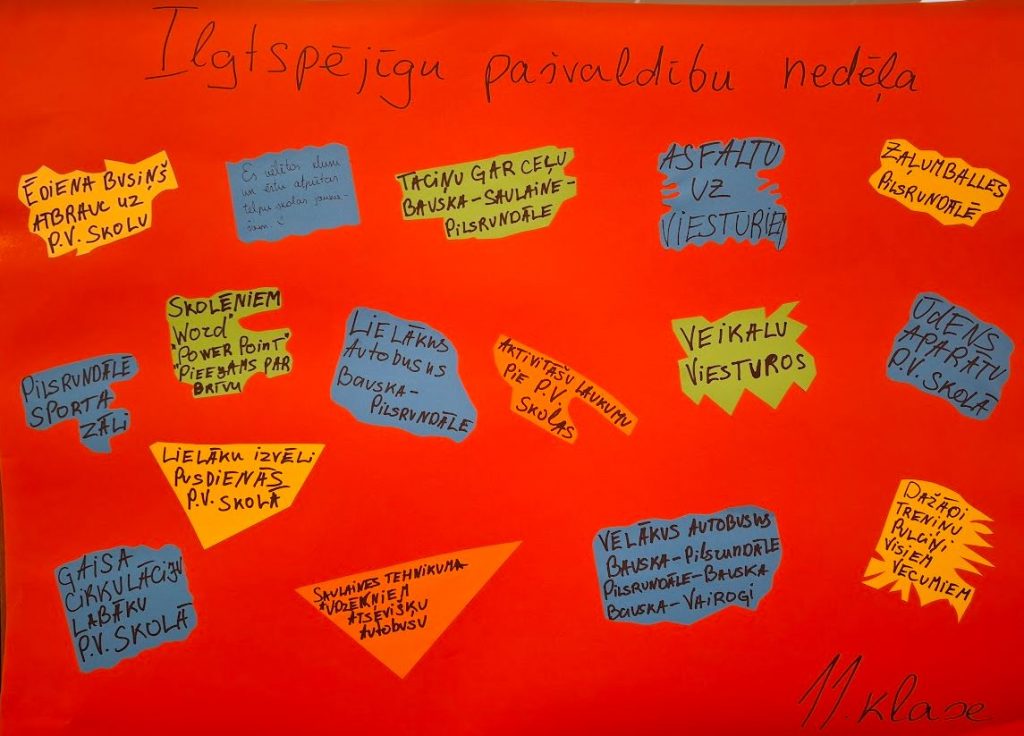 Ilgtspējīgu pašvaldību nedēļa
ĒDIENA BUSIŅŠ
ATBRAUC UZ
P.V. SKOLU
Es vēlētos klusu
un ērtu atpūtas
telpu skolas jaunie-
šiem :)
TACIŅU GAR CEĻU
BAUSKA-SAULAINE-
PILSRUNDĀLE
ASFALTU
UZ
VIESTURIEM
ZAĻUMBALLES
PILSRUNDĀLĒ
PILSRUNDĀLĒ
SPORTA
ZĀLI
SKOLĒNIEM
"WORD"
"POWER POINT"
PIEEJAMS PAR
BRĪVU
LIELĀKUS
AUTOBUSUS
BAUSKA-
PILSRUNDĀLE
AKTIVITĀŠU LAUKUMU
PIE P.V.
SKOLAS
VEIKALU
VIESTUROS
ŪDENS
APARĀTU
P.V. SKOLĀ
LIELĀKU IZVĒLI
PUSDIENĀS
P.V. SKOLĀ
GAISA
CIKKULĀCIJU
LABĀKU
P.V. SKOLĀ
SAULAINES TEHNIKUMA
AUDZĒKŅIEM
ATSEVIŠĶU
AUTOBUSU
VĒLĀKUS AUTOBUSUS
BAUSKA-PILSRUNDĀLE
PILSRUNDĀLE-BAUSKA
BAUSKA-VAIROGI
DAŽĀDI
TRENIŅU
PULCIŅI
VISIEM
VECUMIEM
11. klase